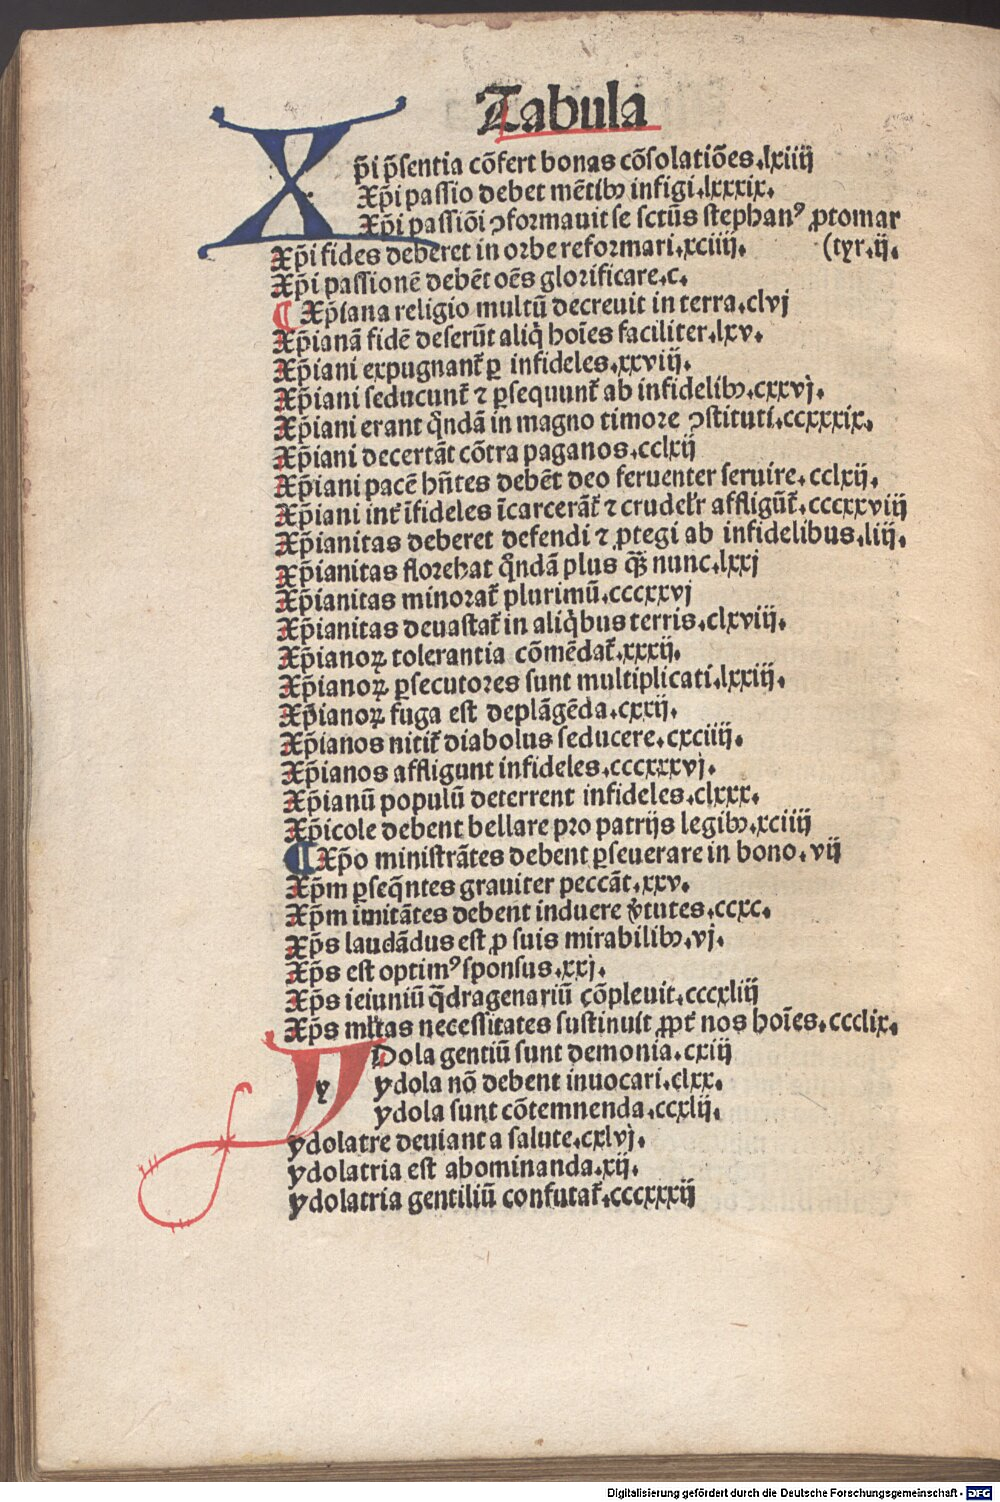 Tabula
Xp̄i p̄sentia cōfert bonas cōsolatiōes.lxiiij
Xp̄i passio debet mētibꝫ infigi.lxxxix.
Xp̄i passiōi ꝯformauit se sctūs stephanꝰ ꝓtomar
Xp̄i fides deberet in orbe reformari.xciiij. (tyr.ij.
Xp̄i passionē debēt oēs glorificare.c.
¶ Xp̄iana religio multū decreuit in terra.clvj
Xp̄ianā fidē deserūt aliq̄ hoīes faciliter.lxv.
Xp̄iani expugnant᷑ ꝑ infideles.xxviij.
Xp̄iani seducunt᷑ ⁊ ꝑsequunt᷑ ab infidelibꝫ.cxxvj.
Xp̄iani erant q̄ndā in magno timore ꝯstituti.ccxxxix.
Xp̄iani decertāt cōtra paganos.cclxij
Xp̄iani pacē hn̄tes debēt deo feruenter seruire.cclxij.
Xp̄iani int᷑ īfideles īcarcerāt᷑ ⁊ crudelr̄ affligūt᷑.cccxxviij
Xp̄ianitas deberet defendi ⁊ ꝓtegi ab infidelibus.liij.
Xp̄ianitas florebat q̄ndā plus q̄ꝫ nunc.lxxj
Xp̄ianitas minorat᷑ plurimū.cccxxvj
Xp̄ianitas deuastat᷑ in aliq̄bus terris.clxviij.
Xp̄ianoꝝ tolerantia cōmēdat᷑.xxxij.
Xp̄ianoꝝ ꝑsecutores sunt multiplicati.lxxiij.
Xp̄ianoꝝ fuga est deplāgēda.cxxij.
Xp̄ianos nitit᷑ diabolus seducere.cxciiij.
Xp̄ianos affligunt infideles.cccxxxvj.
Xp̄ianū populū deterrent infideles.clxxx.
Xp̄icole debent bellare pro patrijs legibꝫ.xciiij
¶ Xp̄o ministrātes debent ꝑseuerare in bono.vij
Xp̄m ꝑseq̄ntes grauiter peccāt.xxv.
Xp̄m imitātes debent induere v̄tutes.ccxc.
Xp̄s laudādus est ꝓ suis mirabilibꝫ.vj.
Xp̄s est optimꝰ sponsus.xxj.
Xp̄s ieiuniū q̄dragenariū cōpleuit.cccxliij
Xp̄s ml̄tas necessitates sustinuit ꝓpt᷑ nos hoīes.ccclix.
YDola gentiū sunt demonia.cxiij
ydola nō debent inuocari.clxx.
ydola sunt cōtemnenda.ccxlij.
ydolatre deuiant a salute.cxlvj.
ydolatria est abominanda.xij.
ydolatria gentiliū confutat᷑.cccxxxij
Digitalisierung gefördert durch die Deutsche Forschungsgemeinschaft - DFG